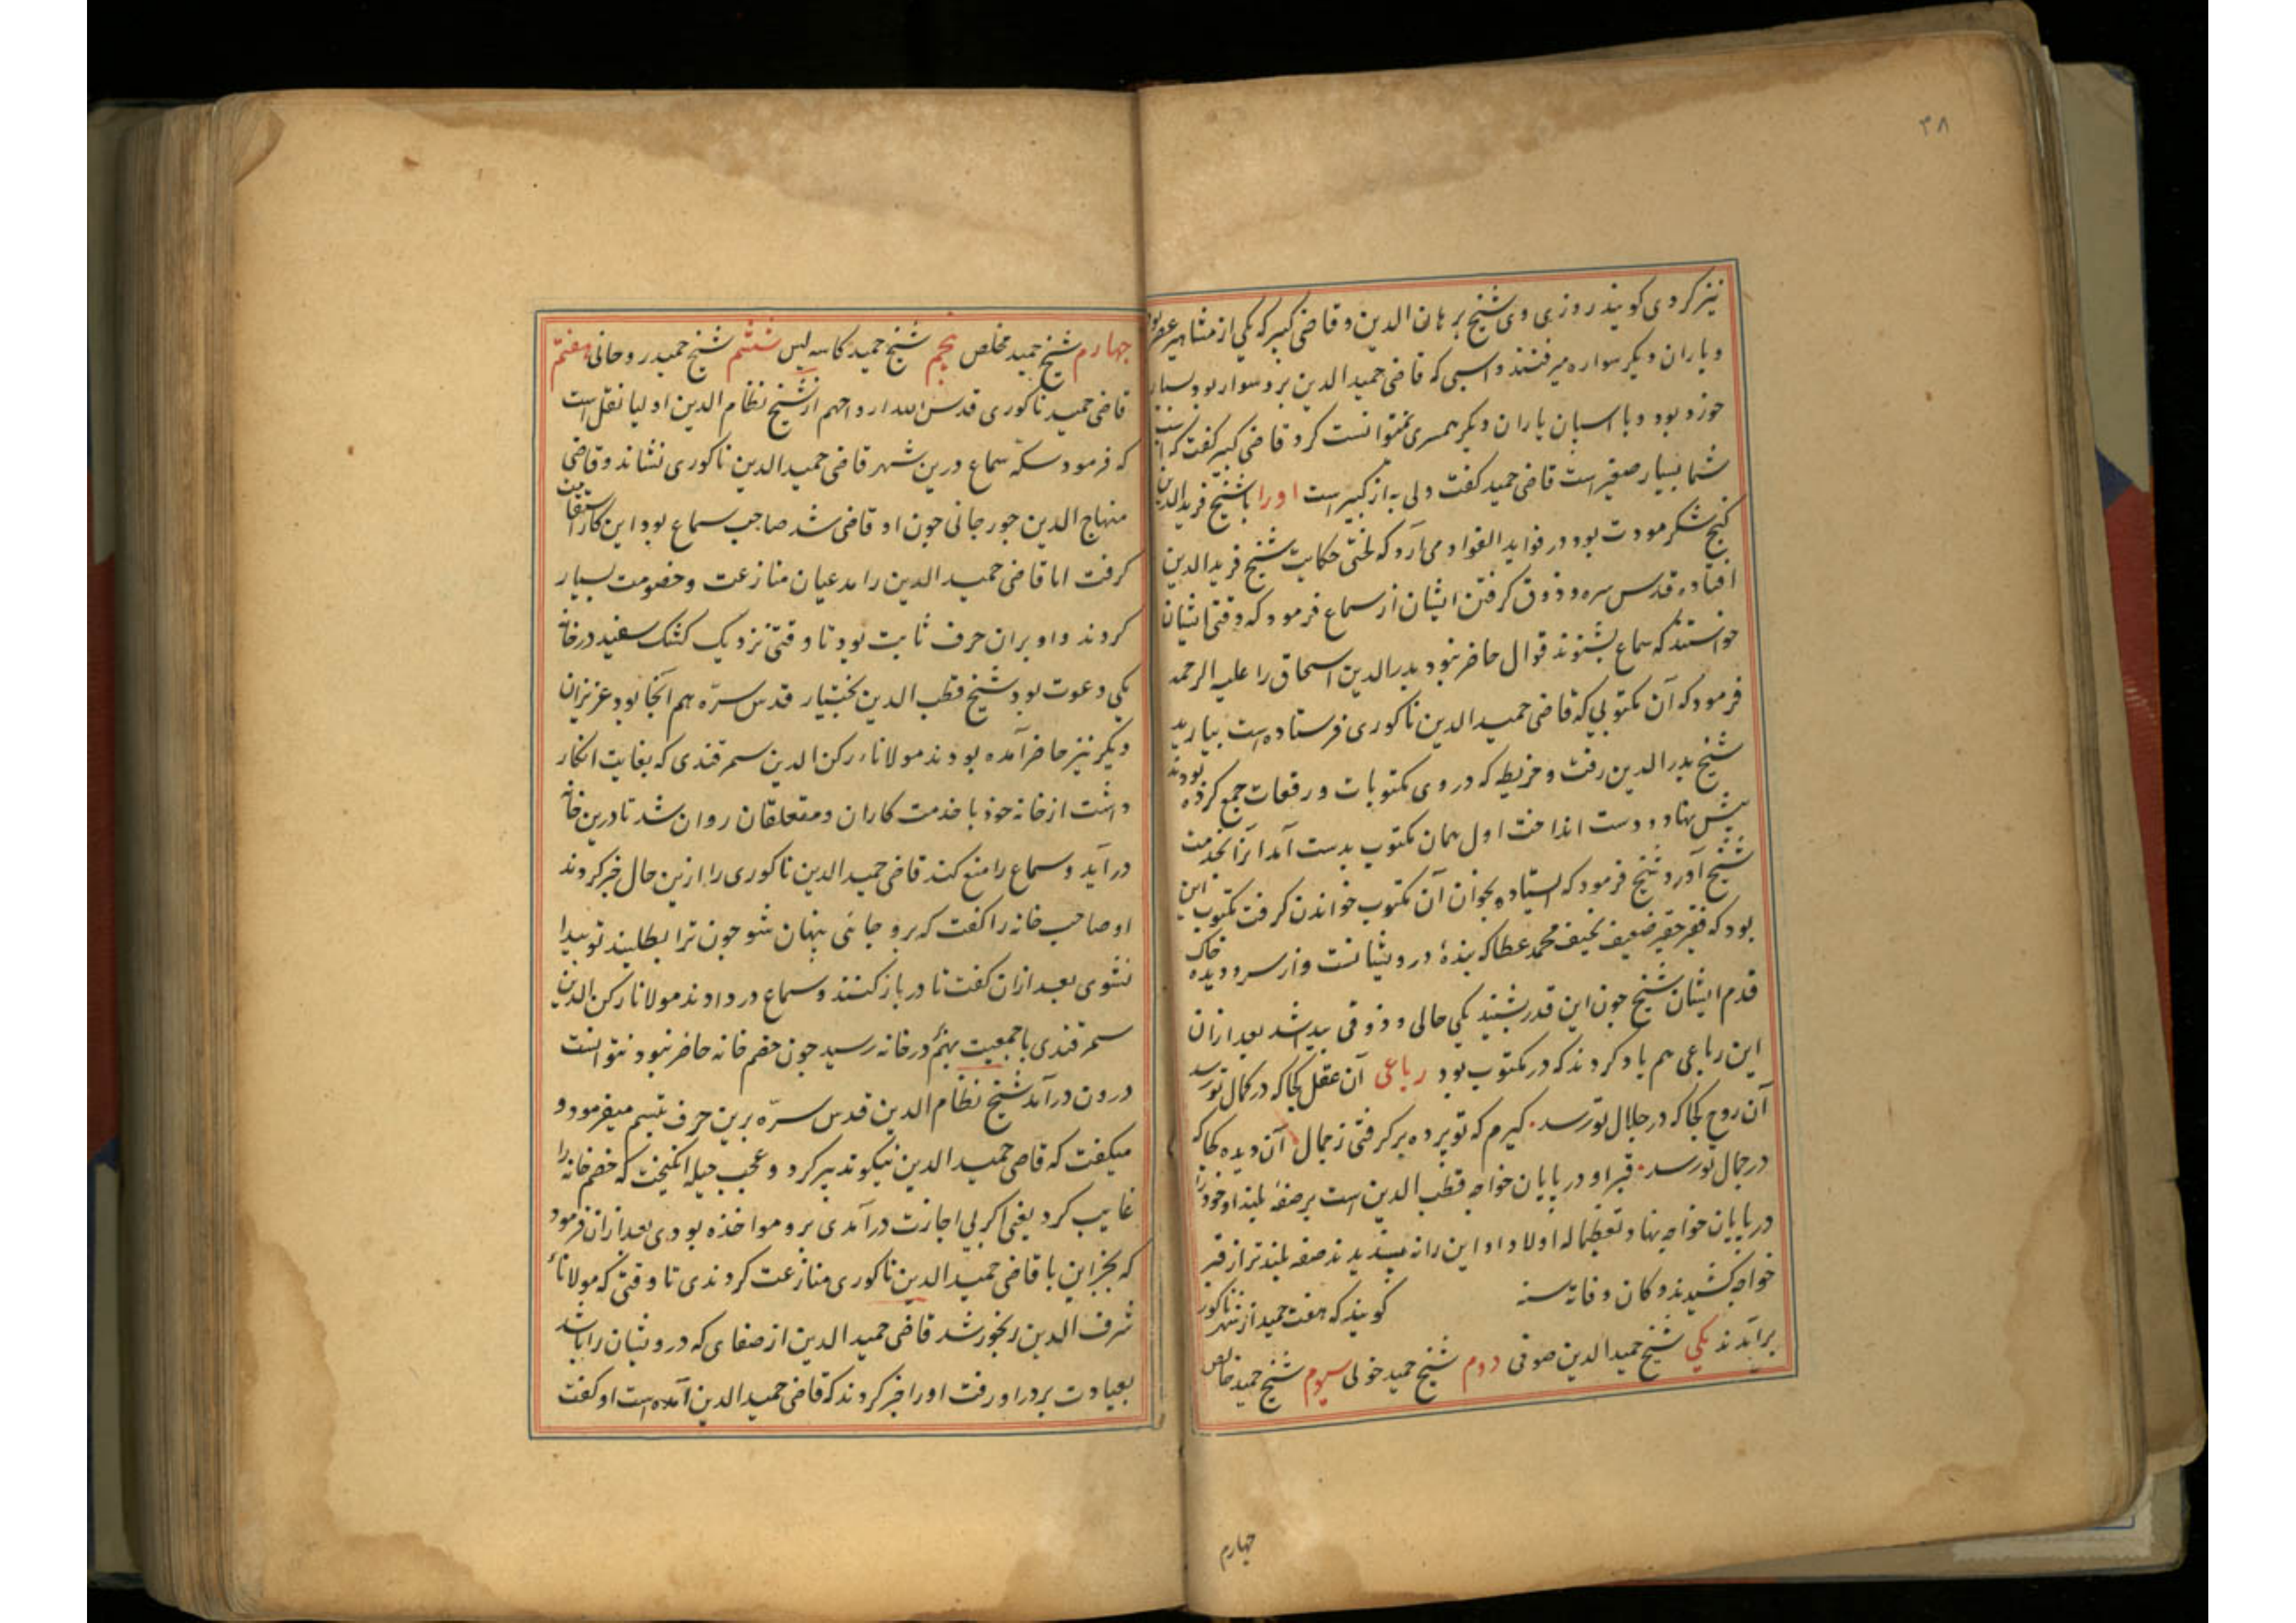 ۳۸
نیز کردی کویند روزی وی و شیخ برهان الدین و قاضی کبیر که یکی از مشاهیر عصر بود
و یاران دیکر سواره میرفتند و اسپی که قاضی حمید الدین برو سوار بود بسیار
خورد بود و با اسپان یاران دیکر همسری نمیتوانست کرد قاضی کبیر کفت که اسپ
شما بسیار صغیر است قاضی حمید کفت ولی به از کبیر است او را با شیخ فرید الدین
کنج شکر مودت بود در فواید الفواد می آرد که لختی حکایت شیخ فرید الدین
افتاده قدس سره و ذوق کرفتن ایشان از سماع فرمود که وقتی ایشان
خواستند که سماع بشنوند قوال حاضر نبود بدر الدین اسحاق را علیه الرحمه
فرمود که آن مکتوبی که قاضی حمید الدین ناکوری فرستاده است بیارید
شیخ بدر الدین رفت و خریطه که در وی مکتوبات و رقعات جمع کرده بودند
پیش نهاد و دست انداخت اول همان مکتوب بدست آمد آنرا بخدمت
شیخ آورد شیخ فرمود که استاده بخوان آن مکتوب خواندن کرفت مکتوب این
بود که فقیر حقیر ضعیف نحیف محمد عطا که بندهٔ درویشانست و از سر و دیده خاک
قدم ایشان شیخ چون این قدر بشنید یکی حالی و ذوقی پید شد بعد ازان
این رباعی هم یاد کردند که در مکتوب بود رباعی آن عقل کجا که در کمال تو رسد
آن روح کجا که در جلال تو رسد کیرم که تو پرده بر کرفتی ز جمال آن دیده کجا که
در جمال تو رسد قبر او در پایان خواجه قطب الدین است بر صفهٔ بلند او خود را
در پایان خواجه نهاد تعظیما له اولاد او این را نه پسندیدند صفه بلندتر از قبر
خواجه کشیدند و کان وفاته سنه کویند که هفت حمید از شهر ناکور
برآمدند یکی شیخ حمید الدین صوفی دوم شیخ حمید خولی سیوم شیخ حمید خالص
چهارم
چهارم شیخ حمید مخلص پنجم شیخ حمید کاسه لیس ششم شیخ حمید روحانی هفتم
قاضی حمید ناکوری قدس الله ارواحهم از شیخ نظام الدین اولیا نقل است
که فرمود سکّه سماع درین شهر قاضی حمید الدین ناکوری نشاند و قاضی
منهاج الدین جورجانی چون او قاضی شد صاحب سماع بود این کار استقامت
کرفت اما قاضی حمید الدین را مدعیان منازعت و خصومت بسیار
کردند و او بران حرف ثابت بود تا وقتی نزدیک کشک سفید در خانه
یکی دعوت بود شیخ قطب الدین بختیار قدس سرّه هم آنجا بود عزیزان
دیکر نیز حاضر آمده بودند مولانا رکن الدین سمرقندی که بغایت انکار
داشت از خانه خود با خدمت کاران و متعلقان روان شد تا درین خانه
درآید و سماع را منع کند قاضی حمید الدین ناکوری را ازین حال خبر کردند
او صاحب خانه را کفت که برو جائی پنهان شو چون ترا بطلبند تو پیدا
نشوی بعد ازان کفت تا در باز کنند و سماع در دادند مولانا رکن الدین
سمرقندی با جمعیت بهم در خانه رسید چون خصم خانه حاضر نبود نتوانست
درون درآمد شیخ نظام الدین قدس سرّه برین حرف تبسم میفرمود و
میکفت که قاضی حمید الدین نیکو تدبیر کرد و عجب حیله انکیخت که خصم خانه را
غایب کرد یعنی اکر بی اجازت درآمدی برو مواخذه بودی بعد ازان فرمود
که بجز این با قاضی حمید الدین ناکوری منازعت کردندی تا وقتی که مولانا
شرف الدین رنجور شد قاضی حمید الدین از صفای که درویشان را باشد
بعیادت بر در او رفت او را خبر کردند که قاضی حمید الدین آمده است او کفت